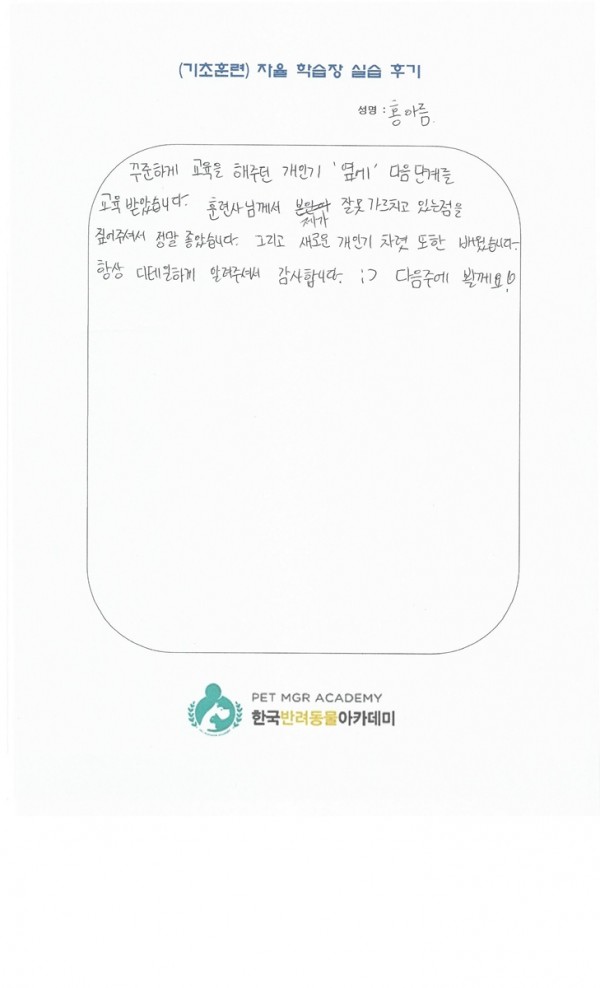 (기초훈련) 자율 학습장 실습 후기
성명 : 홍아름
꾸준하게 교육을 해주던 개인기 '옆에' 다음단계를
교육 받았습니다. 훈련사님께서 제가 잘못 가르치고 있는점을
짚어주셔서 정말 좋았습니다. 그리고 새로운 개인기 차렷 또한 배웠습니다.
항상 디테일하게 알려주셔서 감사합니다. :> 다음주에 뵐께요!
PET MGR ACADEMY
한국반려동물아카데미